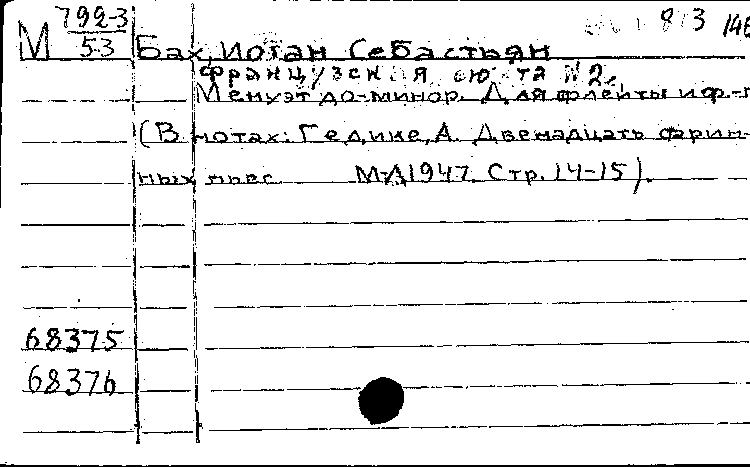 М 792-3 813 146
53 Бах, Иоган Себастьян
Французская сюита №2.
Менуэт до-минор. Для флейты и ф.-п
(В нотах: Гедике, А. Двенадцать
ных пьес М-Л 1947. Стр. 14-15).
68375
68376